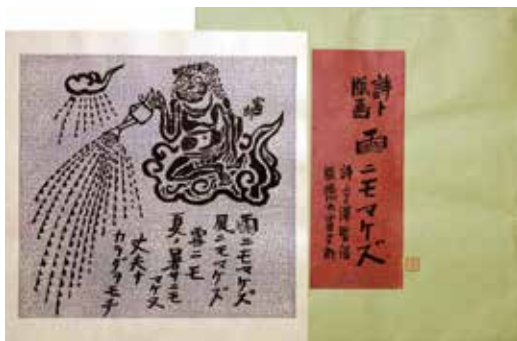 雨ニモマケズ
風ニモマケズ
雪ニモ
夏ノ暑サニモ
マケズ
丈夫ナ
カラダヲモチ
詩ト
版画
雨ニモマケズ
詩 宮澤賢治